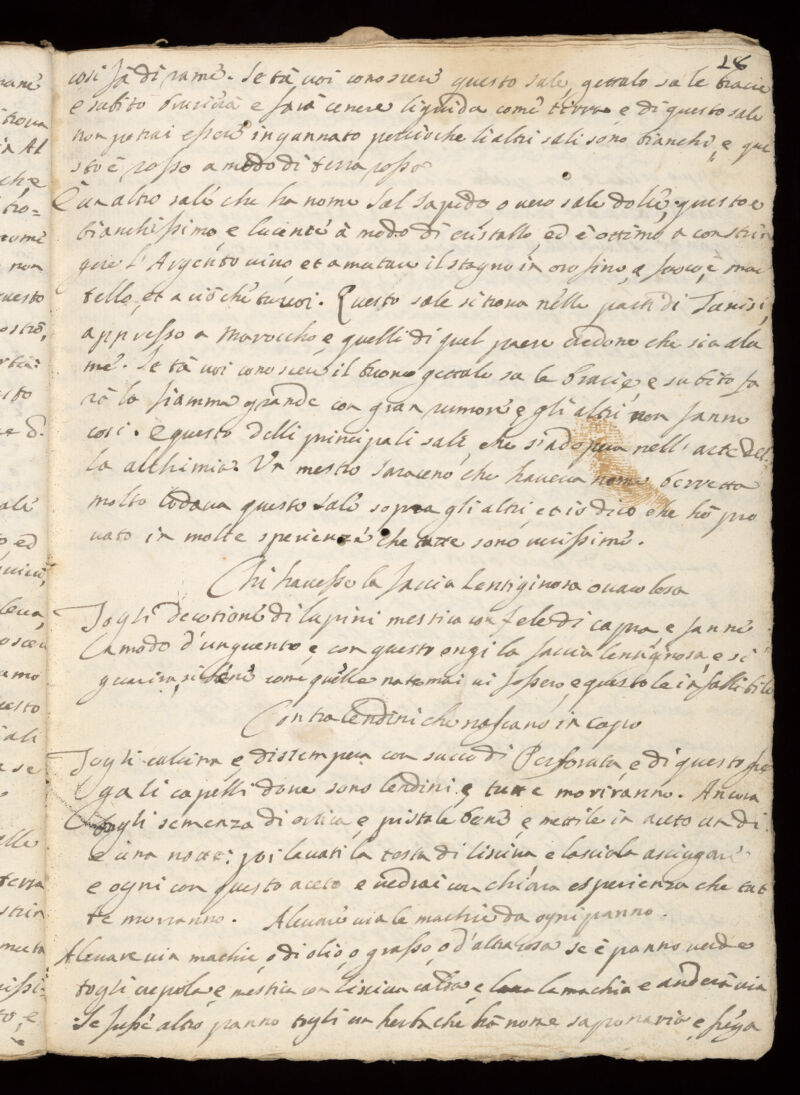 28
cosi fà di rame. Se tù voi conoscere questo sale, gettalo sà le bracie
e subito brucierà e farà cenere liquida come terra e di questo sale
non potrai essere ingannato percioche li altri sali sono bianchi, e que
sto è rosso a modo di terra rossa
È un altro sale che ha nome Sal sapido, o vero sale dolce, questo e
bianchissimo e lucente à modo di cristallo, ed è ottimo a constrin
gere l'Argento vivo, et a mutare il stagno in oro fino, a foco, e mar
tello, et a ciò che tu voi. Questo sale si trova nelle parti di Tunisi,
appresso a Marocho e quelli di quel paese credono che sia alu
me. Se tù voi conoscere il buono gettalo sà le bracie e subito fa
rà la fiamma grande con gran rumore e gli altri non fanno
cosi. È questo delli principali sale che s'adopera nell'arte del
la alchimia. Un mestro saraceno che haveva nome berretta
molto lodava questo sale sopra gli altri et io dico che hò pro
vato in molte sperienze che tutte sono verissime.
Chi havesse la faccia lentiginosa o varolosa
Togli decotione di lupini mestica con fele di capra e fanne
a modo d'unguento e con questo ongi la faccia lentignosa e si
guarirai si bene come quelle nate mai vi fossero, e questo le infallibile
Contra lendini che nascano in capo
Togli calcina e distempera con succo di Perforata, e di questo fre
ga li capelli dove sono lendini e tutte moriranno. Ancora
togli semenza di ortica e pistale bene e mettile in aceto un di
e una notte: poi lavati la testa di lisciva e lasciala asciugare
e ogni con questo aceto e vedrai con chiara esperienza che tut
te morranno. A levare via le machie da ogni panno.
A levare via machie, o di olio, o grasso, o d'altra cosa se è panno verde
togli cepola, e mestica con lisciva calda, e lava la machia e anderà via
Se fusse altro panno togli un herba che hà nome saponaria e frega